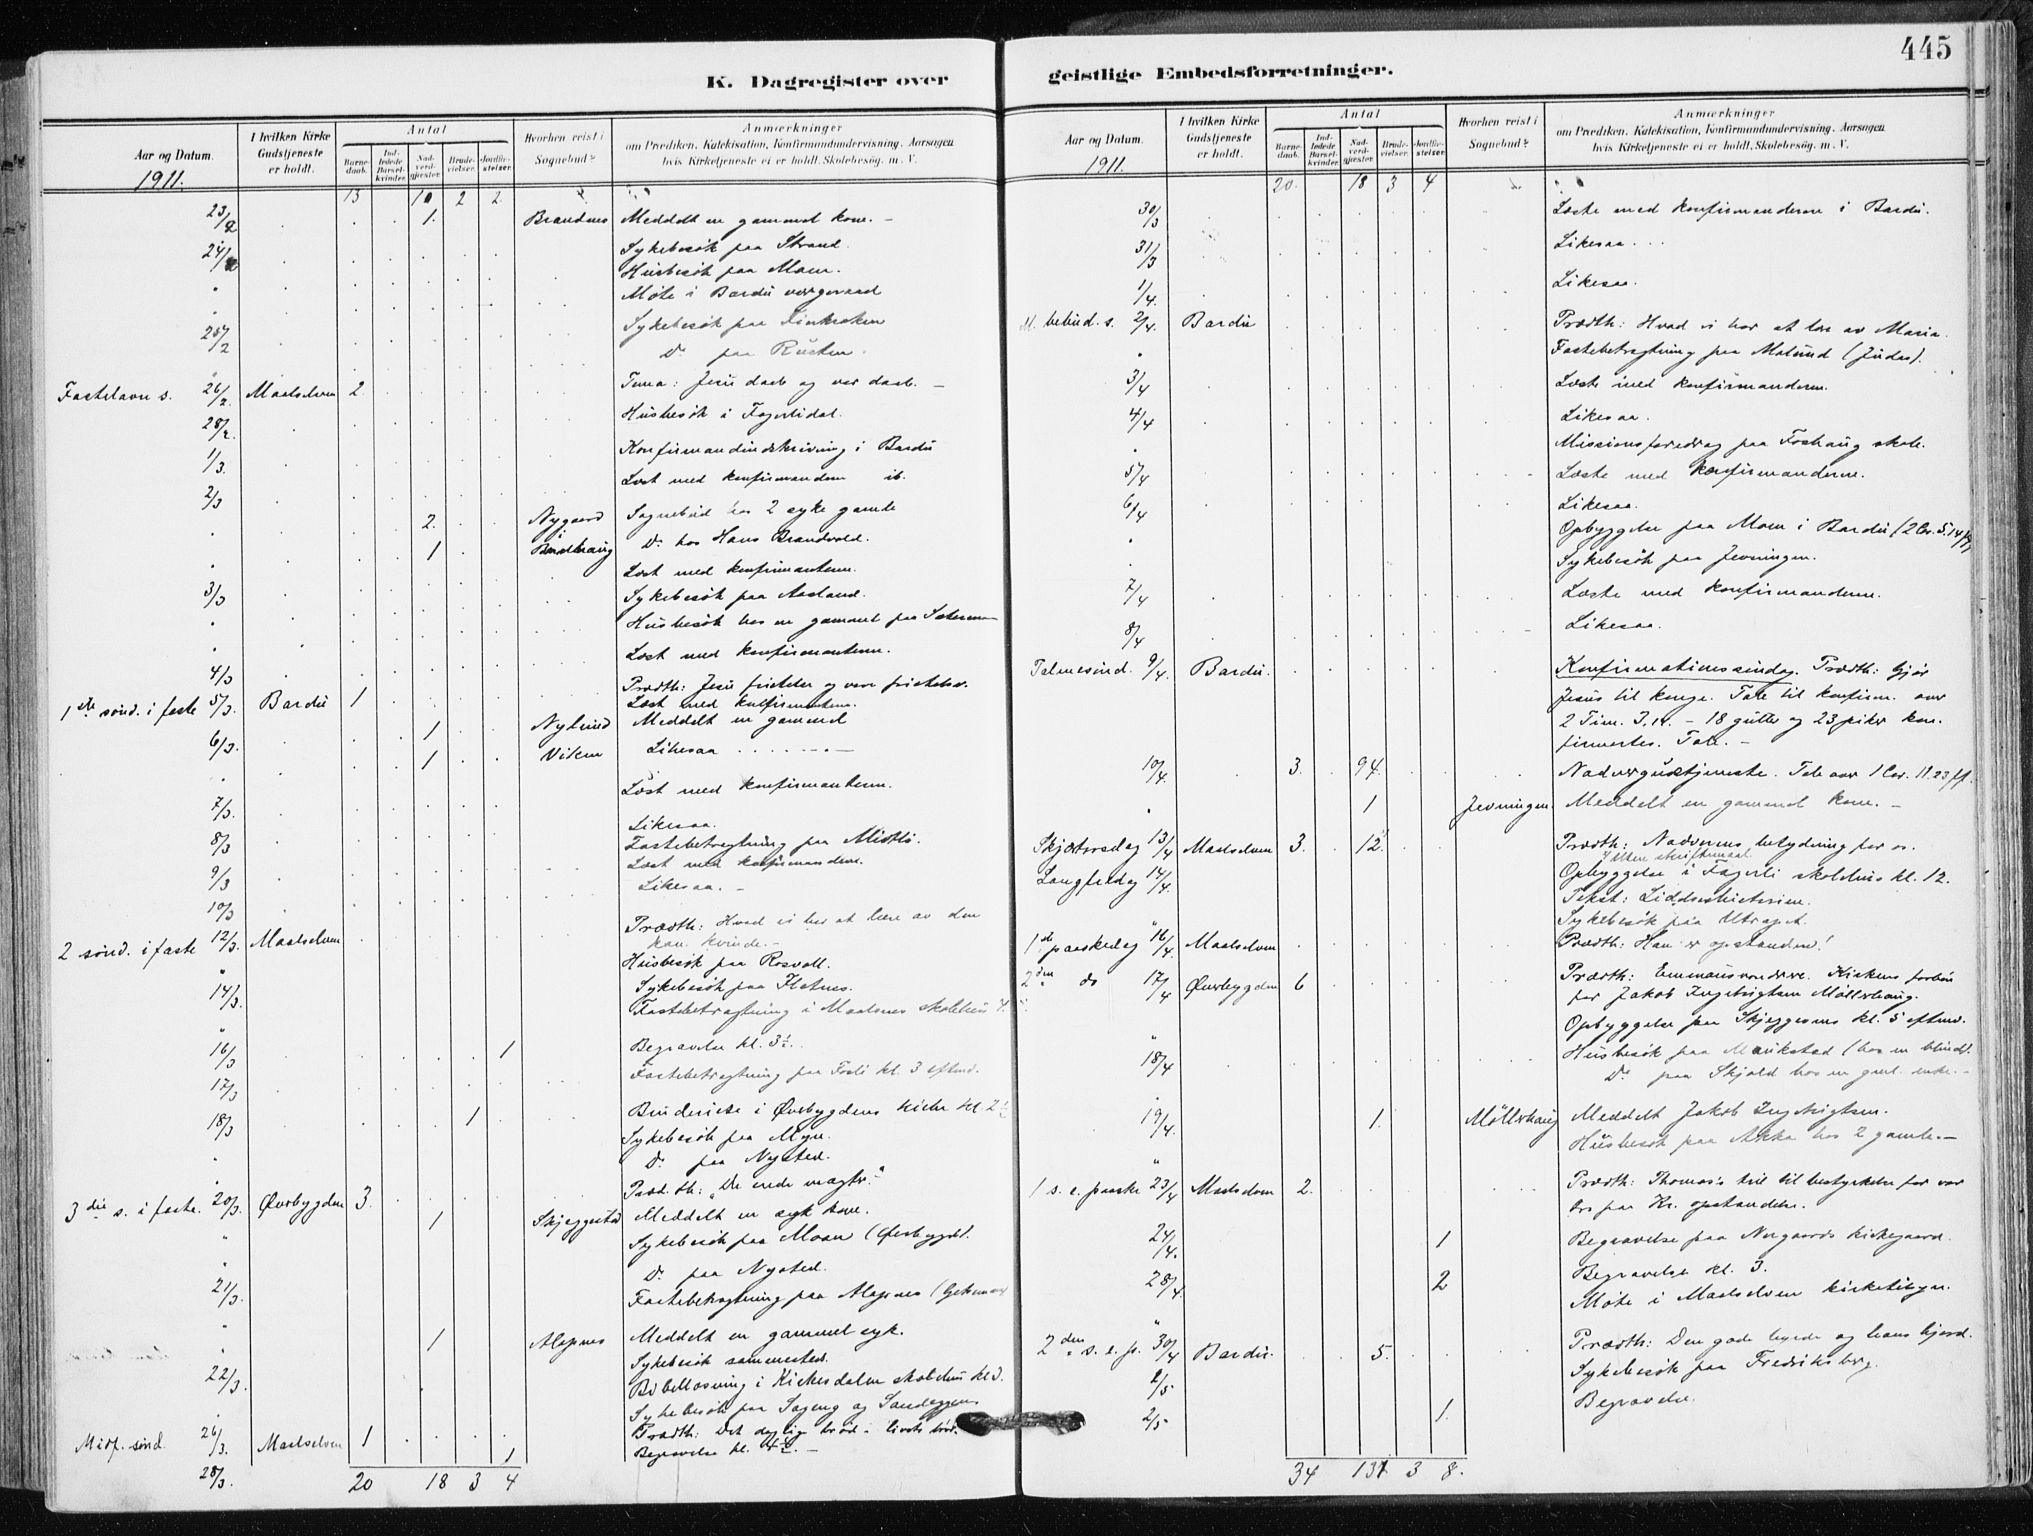 445
K. Dagregister over
Aar og Datum.
1911.
I hvilken Kirke Gudstjeneste er holdt.
Antal
Barne-daab.
Ind-ledede Barsel-kvinder.
Nad-verd-gjæster.
Brude-vielser.
Jordfæ-stelser.
Hvorhen reist i Sognebud?
Anmærkninger
om Prædiken, Katekisation, Konfirmandundervisning, Aarsagen
hvis Kirketjeneste ei er holdt, Skolebesøg, m. V.
13 10 2 2
23/2 1. Brandnes Meddelt en gammel kone. –
24/2 Sykebesök paa Strand.
" Husbesök paa Moen.
" Møte i Bardu vergeraad
25/2 Sykebesök paa
" Do paa Rusten.
Fastelavn s. 26/2 Maalselven 2. Tema: Jesu daab og vor daab. –
28/2. Husbesök i Fagerlidal.
1/3. Konfirmandindskrivning i Bardu
2/3 Læst med konfirmandene ib.
" 2. Nygaard Sognebud hos 2 syke gamle
" 1 Do hos Hans Brandvold.
Læst med konfirmantene.
3/3 Sykebesök paa Aasland.
" Husbesök hos en gammel paa
" Læst med konfirmantene.
4/3
1ste sønd. i faste 5/3. Bardu 1 Prædth: Jesu fristelse og vore fristelser.
Læst med konfirmantene.
6/3. 1 Nylund Meddelt en gammel
" 1 Viken Likesaa . . . . . –
7/3. Læst med konfirmantene.
8/3 Likesaa.
Fastebetragtning paa
9/3 Læst med konfirmandene.
10/3 Likesaa. –
2 sønd. i faste 12/3. Maalselven Prædth: Hvad vi har at lære av den
kan. kvinde. –
" Husbesök paa Rosvoll.
14/3. Sykebesök paa Fletnes.
" Fastebetragtning i Maalsnes skolehus
16/3 1 Begravelse kl. 3½.
17/3 Fastebetragtning paa Fosli kl. 3 eftmd.
18/3 1 Brudevielse i Øverbygdens kirke kl. 2½
Sykebesök paa Moen.
" Do paa Nysted.
3die s. i faste. 20/3. Øverbygden 3. Præd. th: „De onde magter."
" 1 Skjeggestad Meddelt en syk kone.
" Sykebesök paa Moan (Øverbygd).
21/3. Do paa Nysted.
" Fastebetragtning paa Alapnes
" 1 Alapnes Meddelt en gammel syk.
22/3. Sykebesök sammesteds.
" Bibellæsning i Kirkesdalen skolehus
Sykebesök paa Sageng og
Midf. sønd. 26/3. Maalselven 1 Prædth: Det daglige brød – livets brød.
28/3. 1 Begravelse kl. 4½. –
20 18 3 4
geistlige Embedsforretninger.
Aar og Datum.
1911.
I hvilken Kirke Gudstjeneste er holdt.
Antal
Barne-daab.
Ind-ledede Barsel-kvinder.
Nad-verd-gjæster.
Brude-vielser.
Jordfæ-stelser.
Hvorhen reist i Sognebud?
Anmærkninger
om Prædiken, Katekisation, Konfirmandundervisning, Aarsagen
hvis Kirketjeneste ei er holdt, Skolebesøg, m. V.
20. 18 3 4
30/3 Læste med konfirmanderne i Bardu.
31/3 Likesaa . . .
1/4. Likesaa.
M. bebud. s. 2/4. Bardu Prædth: Hvad vi har at lære av Maria.
" Fastebetragtning paa Molund (Judas).
3/4 Læste med konfirmanderne.
4/4 Likesaa.
" Missionsforedrag paa Foshaug skole.
5/4 Læste med konfirmanderne.
6/4 Likesaa.
" Opbyggelse paa Moen i Bardu (2 Cor. 5.14
Sykebesök paa Jevningen.
7/4 Læste med konfirmanderne.
8/4 Likesaa.
Palmesønd. 9/4. Bardu. Konfirmationssøndag. Prædth: Gjör
Jesus til konge. Tale til konfirm. over
2 Tim. 3.14. – 18 gutter og 23 piker kon-
firmertes. Tale. –
10/4. 3. 94. Nadvergudstjeneste. Tale over 1 Cor. 11.23 ff.
" 1 Jevningen. Meddelt en gammel kone. –
Skjærtorsdag 13/4 Maalselven 3. 12. Prædth: Nadverens betydning for os.
Langfredag 14/4. Opbyggelse i Fagerli skolehus kl. 12.
Tekst: Lidelseshistorien.
Sykebesök paa
1ste paaskedag 16/4 Maalselven Prædth: Han er opstanden!
2den do 17/4 Øverbygden 6 Prædth: Emmausvandrere. Kirkens forbön
for Jakob Ingebrigtsen Möllerhaug.
" Opbyggelse paa Skjeggesnes kl. 5 eftmd.
18/4 Husbesök paa (hos en blind).
Do paa Skjold hos en gml. enke. –
19/4. 1. Möllerhaug Meddelt Jakob Ingebrigtsen.
Husbesök paa Akka hos 2 gamle. –
1 s. e. paaske 23/4 Maalselven 2. Prædth: Thomas's tvil til bestyrkelse for vor
tro paa Kr. opstandelse.
24/4. 1 Begravelse paa kirkegaard.
28/4. 2 Begravelse kl. 3.
" Møte i Maalselven
2den s. e. p. 30/4 Bardu. 5. Prædth: Den gode hyrde og hans hjord.
2/5. Sykebesök paa Fredriksberg.
2/5 1. Begravelse.
34 131 3 8.